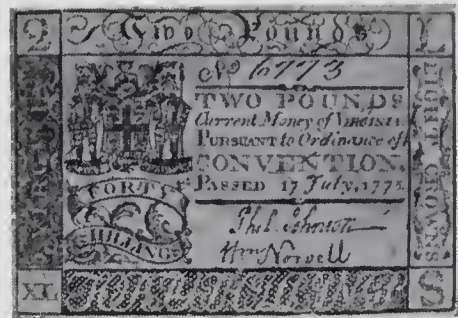 2 Two Pounds L
No 6773
TWO POUNDS
Current Money of VIRGINIA
PURSUANT to Ordinance of
CONVENTION.
PASSED 17 July, 1775.
FORTY
SHILLINGS
Phil. Johnson
Wm Norvell
VIRGINIA
EIGHT CROWNS
XL S